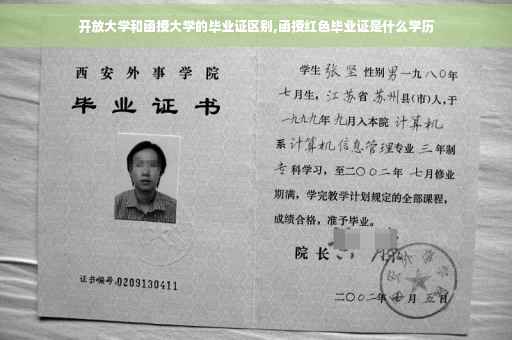 开放大学和函授大学的毕业证区别,函授红色毕业证是什么学历
西安外事学院
毕业证书
证书编号:0209130411
学生 张坚 性别 男 一九八〇年
七月生, 江苏省 苏州 县(市)人,于
一九九九年 九月入本院 计算机
系 计算机信息管理 专业 三 年制
专 科学习, 至二〇〇二年 七月修业
期满, 学完教学计划规定的全部课程,
成绩合格, 准予毕业。
院长
二〇〇二年 月 五日